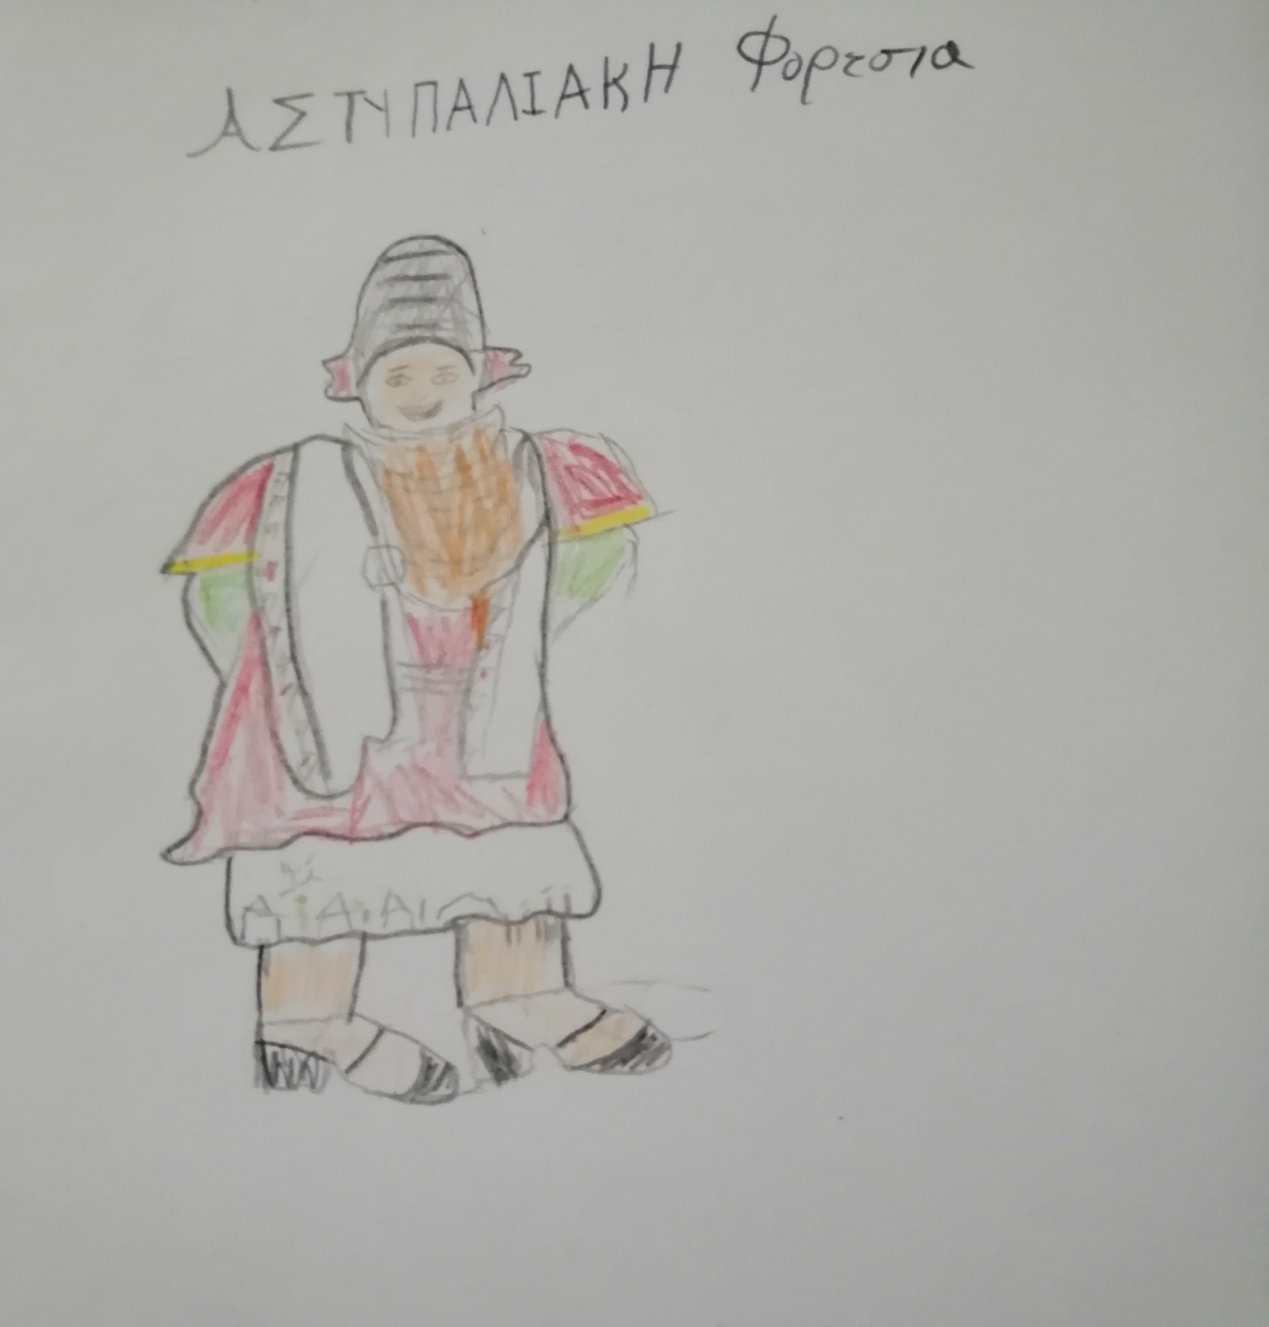 ΑΣΤΥΠΑΛΙΑΚΗ Φορεσια